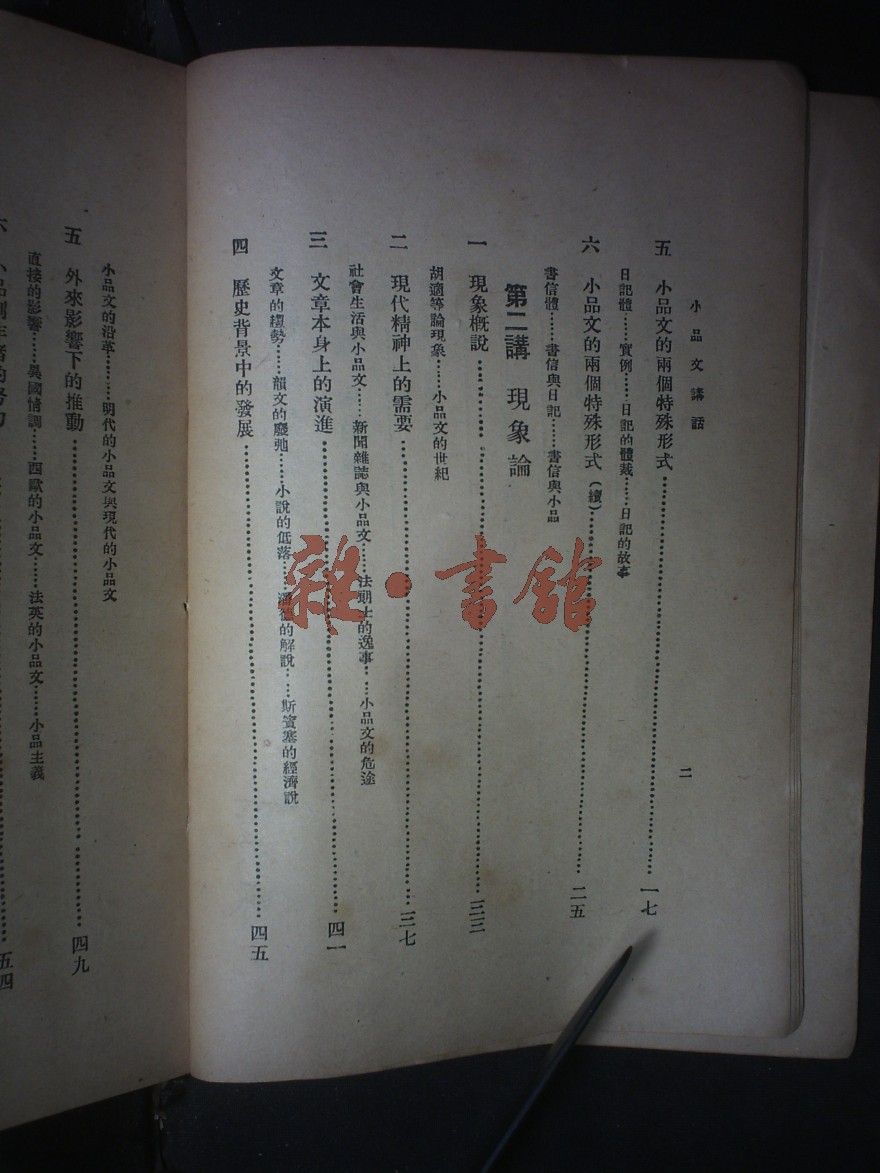 小品文講話
二
五　小品文的兩個特殊形式……一七
日記體……實例……日記的體裁……日記的故事
六　小品文的兩個特殊形式（續）……二五
書信體……書信與日記……書信與小品
第二講　現象論
一　現象概說……三三
胡適等論現象……小品文的世紀
二　現代精神上的需要……三七
社會生活與小品文……新聞雜誌與小品文……法朗士的逸事……小品文的危途
三　文章本身上的演進……四一
文章的趨勢……韻文的廢弛……小說的低落……潘德的解說……斯賓塞的經濟說
四　歷史背景中的發展……四五
小品文的沿革……明代的小品文與現代的小品文
五　外來影響下的推動……四九
直接的影響……異國情調……西歐的小品文……法英的小品文……小品主義
五四
雜·書館